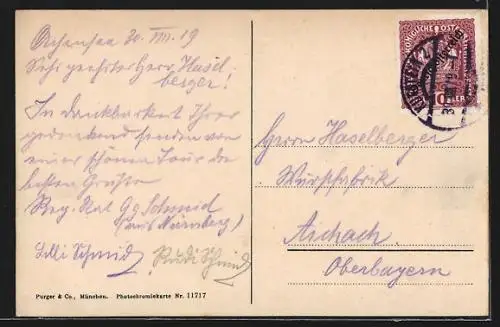 Achensee 30. VIII. 19
Sehr geehrter Herr Hasel-
berger!
In Dankbarkeit Ihrer
gedenkend senden von
einer schönen Tour die
besten Grüße
Reg. Rat Gg Schmid
(aus Nürnberg)
Lilli Schmid Rudi Schmid
Herrn Haselberger
Wurstfabrik
Aichach
Oberbayern
Purger & Co., München. Photochromiekarte Nr. 11717